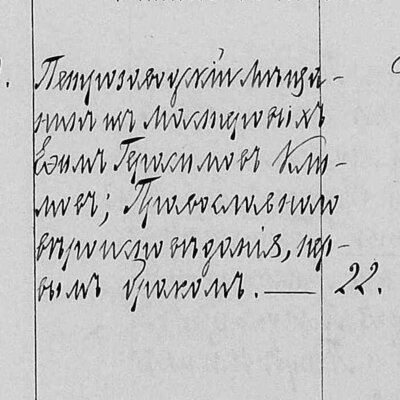 Петрозаводскій мѣща-
нинъ изъ мастеровыхъ
Ефимъ Герасимовъ Кли-
мовъ; Православнаго
вѣроисповѣданія, пер-
вымъ бракомъ. — 22.